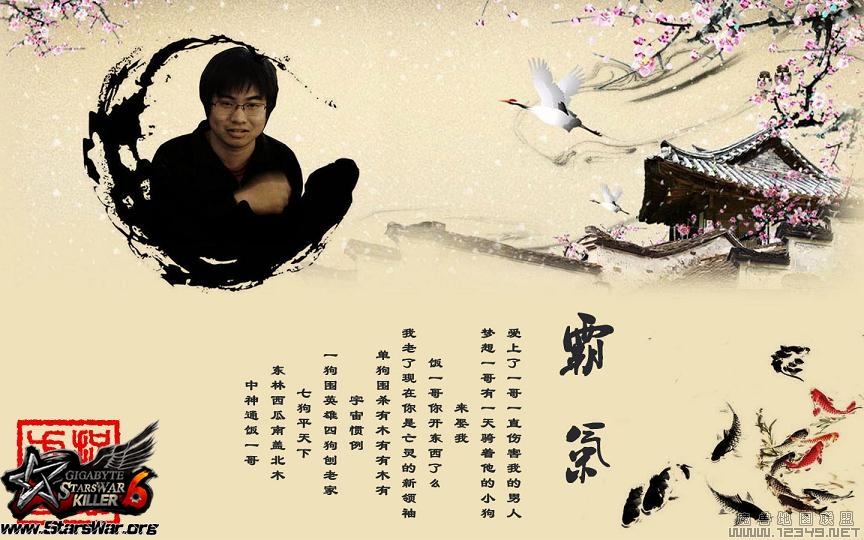 霸氣
爱上了一哥一直伤害我的男人
梦想一哥有一天骑着他的小狗
来娶我
饭一哥你开东西了么
我老了现在你是亡灵的新领袖
单狗围杀有木有有木有
宇宙惯例
一狗围英雄四狗刨老家
七狗平天下
东林西瓜南盖北木
中神通饭一哥
GIGABYTE
STARSWAR
KILLER 6
www.StarsWar.org
魔兽地图联盟
WWW.12349.NET